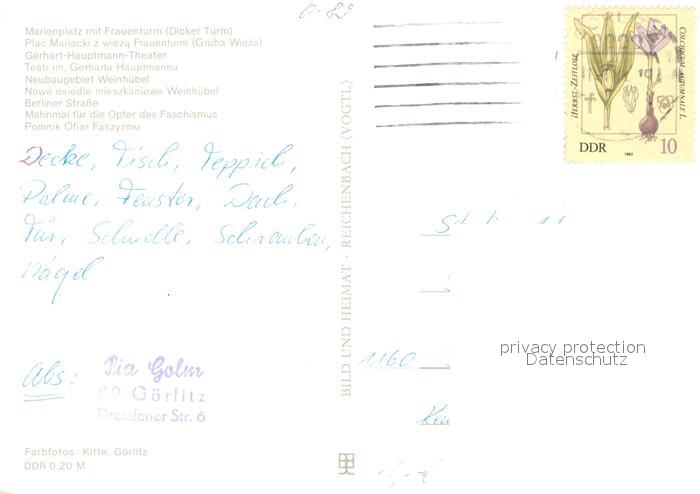 0-89
Marienplatz mit Frauenturm (Dicker Turm)
Plac Mariacki z wieżą Frauenturm (Gruba Wieża)
Gerhart-Hauptmann-Theater
Teatr im. Gerharta Hauptmanna
Neubaugebiet Weinhübel
Nowe osiedle mieszkaniowe Weinhübel
Berliner Straße
Mahnmal für die Opfer des Faschismus
Pomnik Ofiar Faszyzmu
Decke, Tisch, Teppich,
Palme, Fenster, Dach,
Tür, Schwelle, Schrauben,
Nägel
Abs:
Pia Golm
89 Görlitz
Dresdener Str. 6
Farbfotos: Kitte, Görlitz
DDR 0,20 M
BILD UND HEIMAT · REICHENBACH (VOGTL)
HERBST-ZEITLOSE
COLCHICUM AUTUMNALE L.
DDR
1982
10
1160
privacy protection
Datenschutz